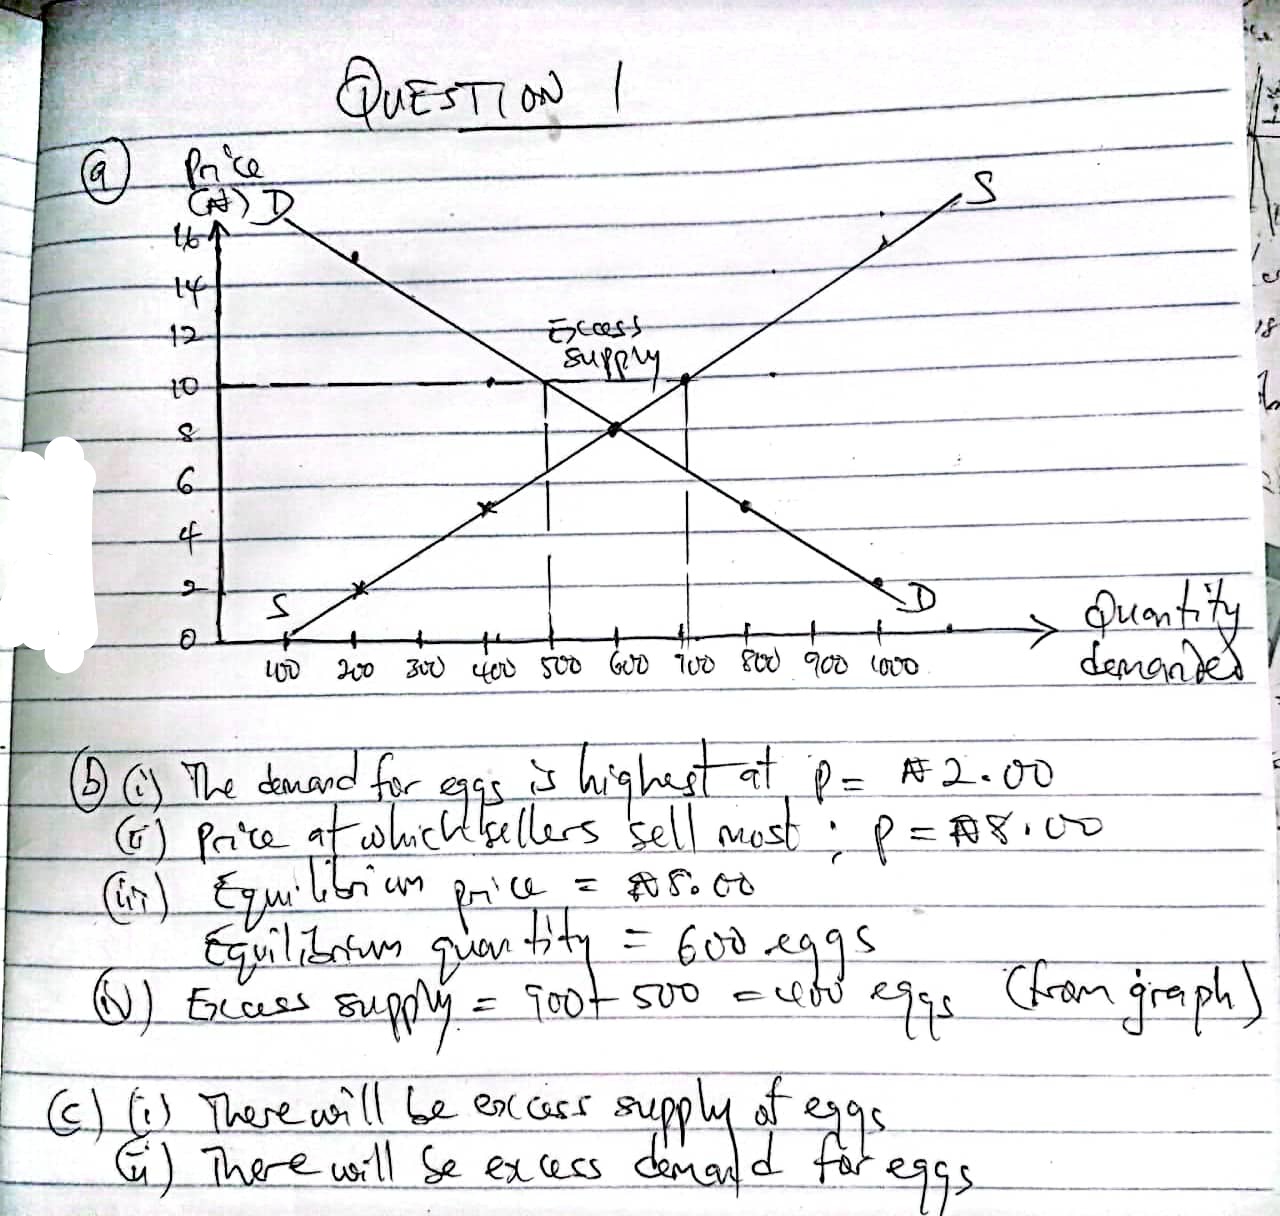 QUESTION 1
(a) Price
(₦) D
S
16
14
12
Excess
supply
10
8
6
4
2
S
D
0
100 200 300 400 500 600 700 800 900 1000
Quantity
demanded
(b) (i) The demand for eggs is highest at p = ₦2.00
(ii) Price at which sellers sell most : p = ₦8.00
(iii) Equilibrium price = ₦8.00
Equilibrium quantity = 600 eggs
(iv) Excess supply = 500 = eggs (from graph)
(c) (i) There will be excess supply of eggs
(ii) There will be excess demand for eggs